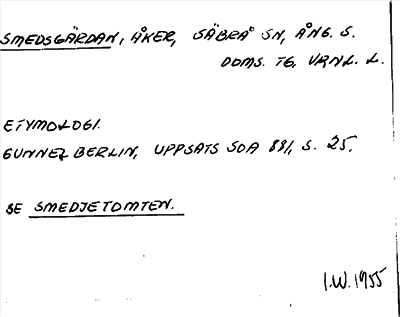 SMEDSGÄRDAN, ÅKER, SÄBRÅ SN, ÅNG. S.
DOMS. TG. VRNL. L.
ETYMOLOGI.
GUNNEL BERLIN, UPPSATS SOA 881, S. 25.
SE SMEDJETOMTEN.
I.W. 1955